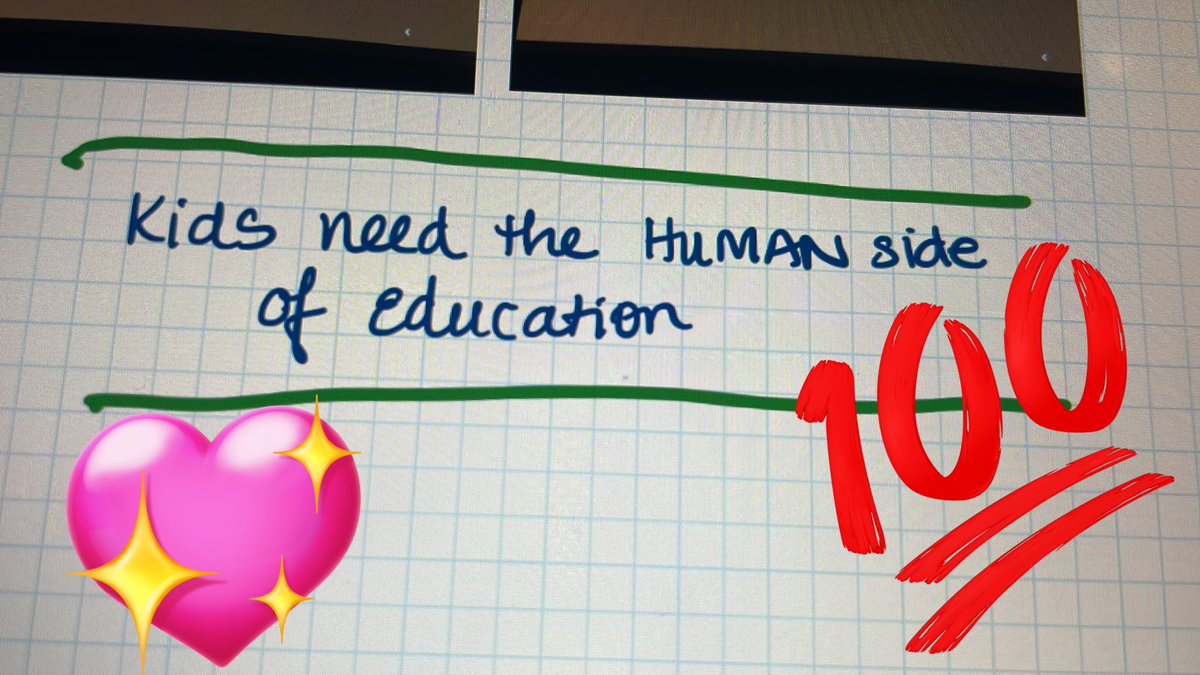 Kids need the HUMAN side
of education
100